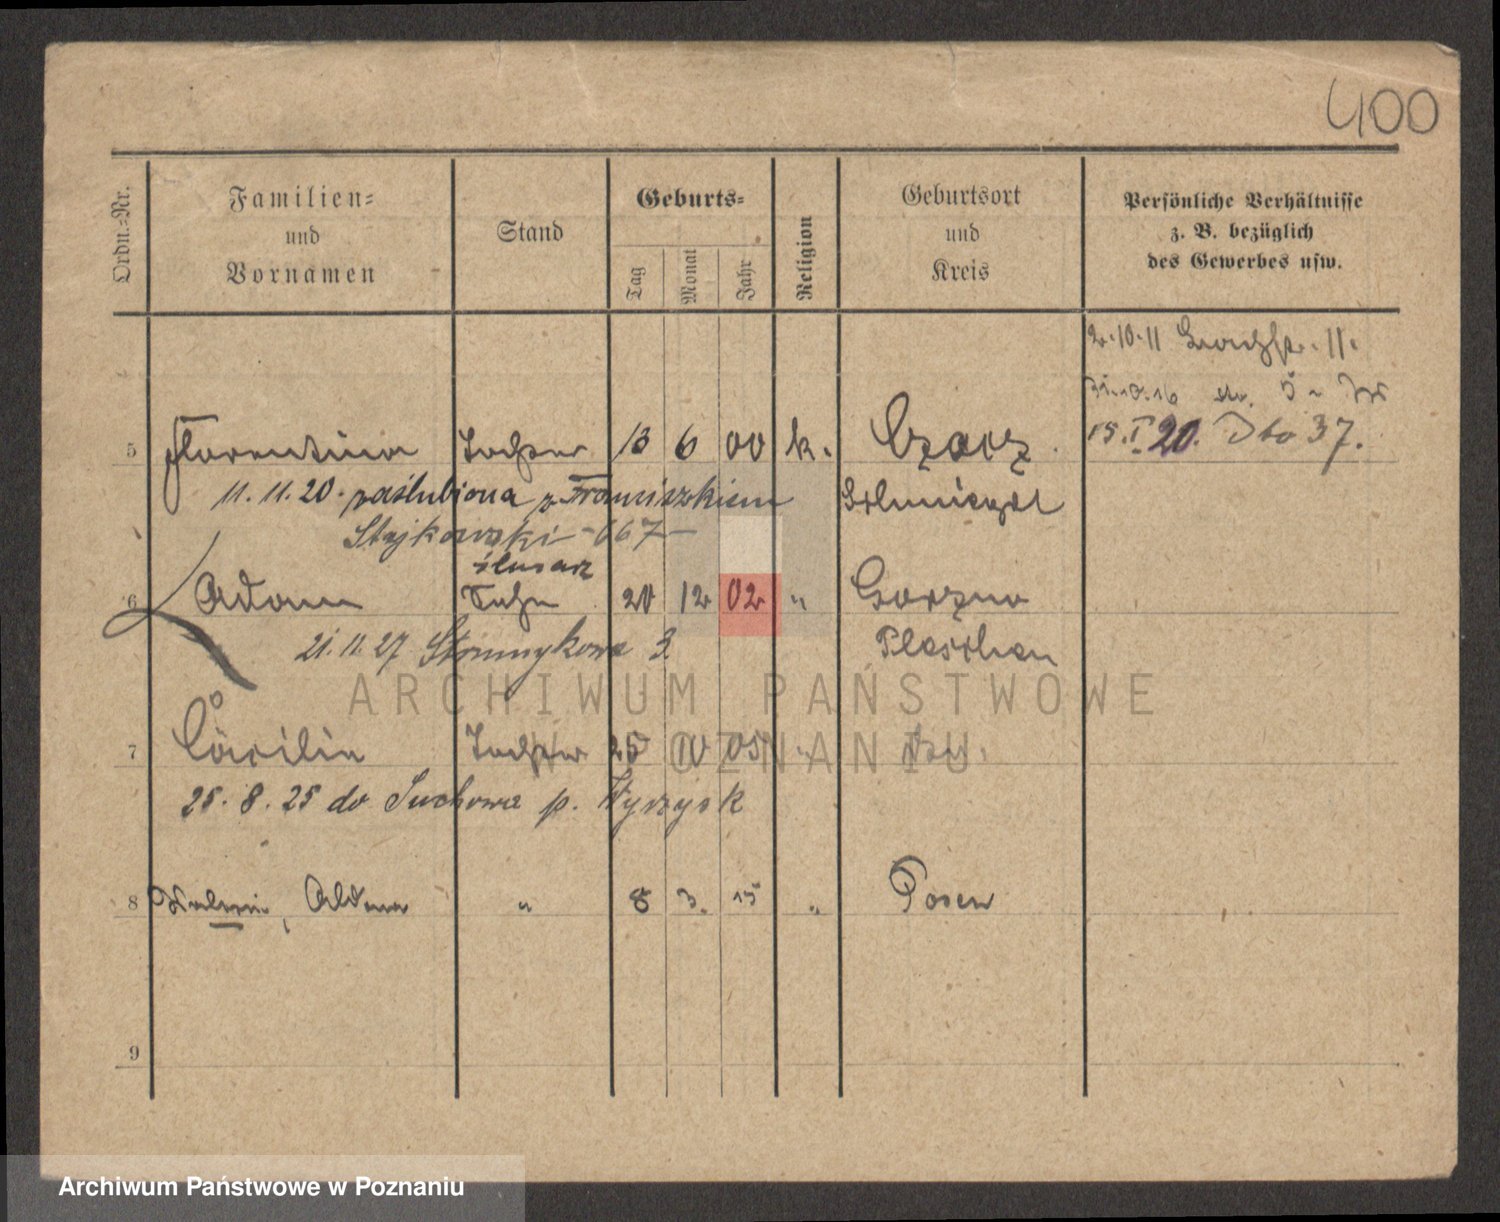 400
Ordn.-Nr.
Familien-
und
Vornamen
Stand
Geburts-
Tag
Monat
Jahr
Religion
Geburtsort
und
Kreis
Persönliche Verhältnisse
z. B. bezüglich
des Gewerbes usw.
2.10.11 11.
31.10.16
15.I.20. Dto 37.
5 Florentina Tochter 13 6 00 k. Czacz
11.11.20. zaślubiona z Franciszkiem Schmiegel
Stajkowski - 667 -
ślusarz
6 Adam Sohn 20 12 02 " Gorzno
21.11.27 Strumykowa 3 Pleschen
7 Cäcilie Tochter 25 10 05 "
25.8.25 do Suchowa p. Wyrzysk
8 Aldona " 8 3. 15 " Posen
9
ARCHIWUM PAŃSTWOWE
W POZNANIU
Archiwum Państwowe w Poznaniu